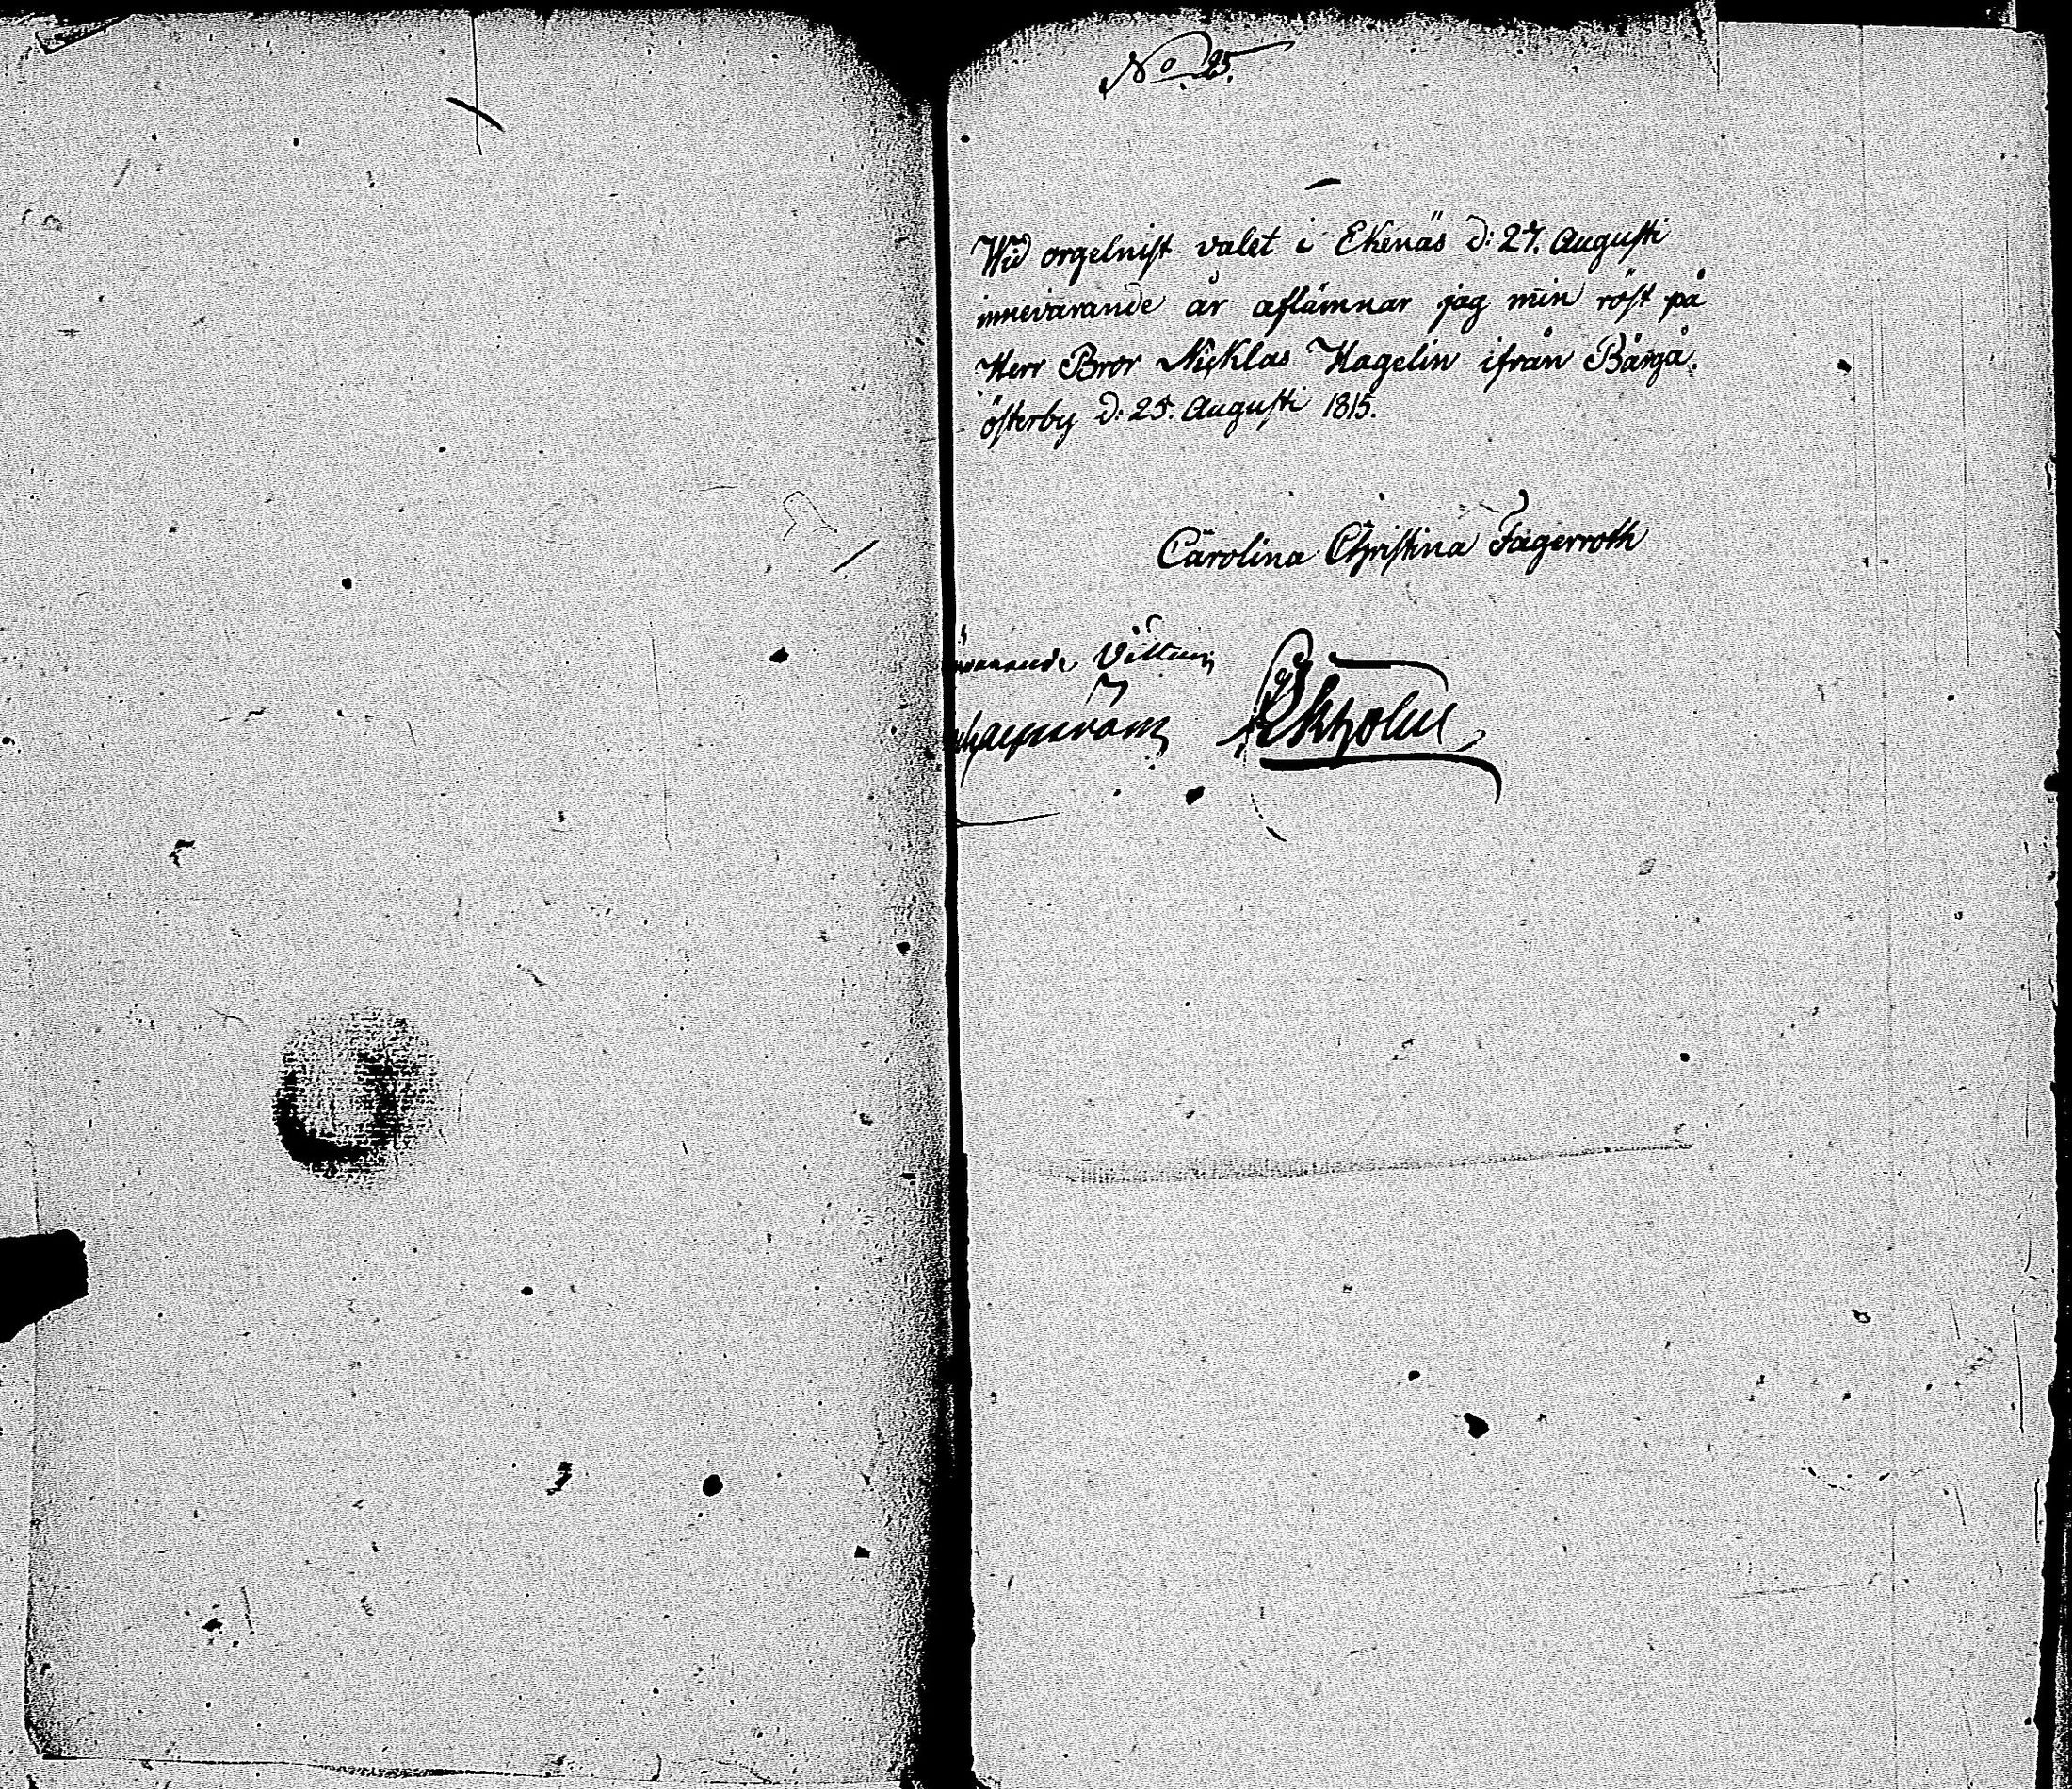 No 25.
Wid orgelnist valet i Ekenäs d: 27. Augusti
innevarande år aflämnar jag min röst på
Herr Bror Nicklas Hagelin ifrån Bårgå.
österby d: 25. Augusti 1815.
Carolina Christina Fagerroth
Ekholm